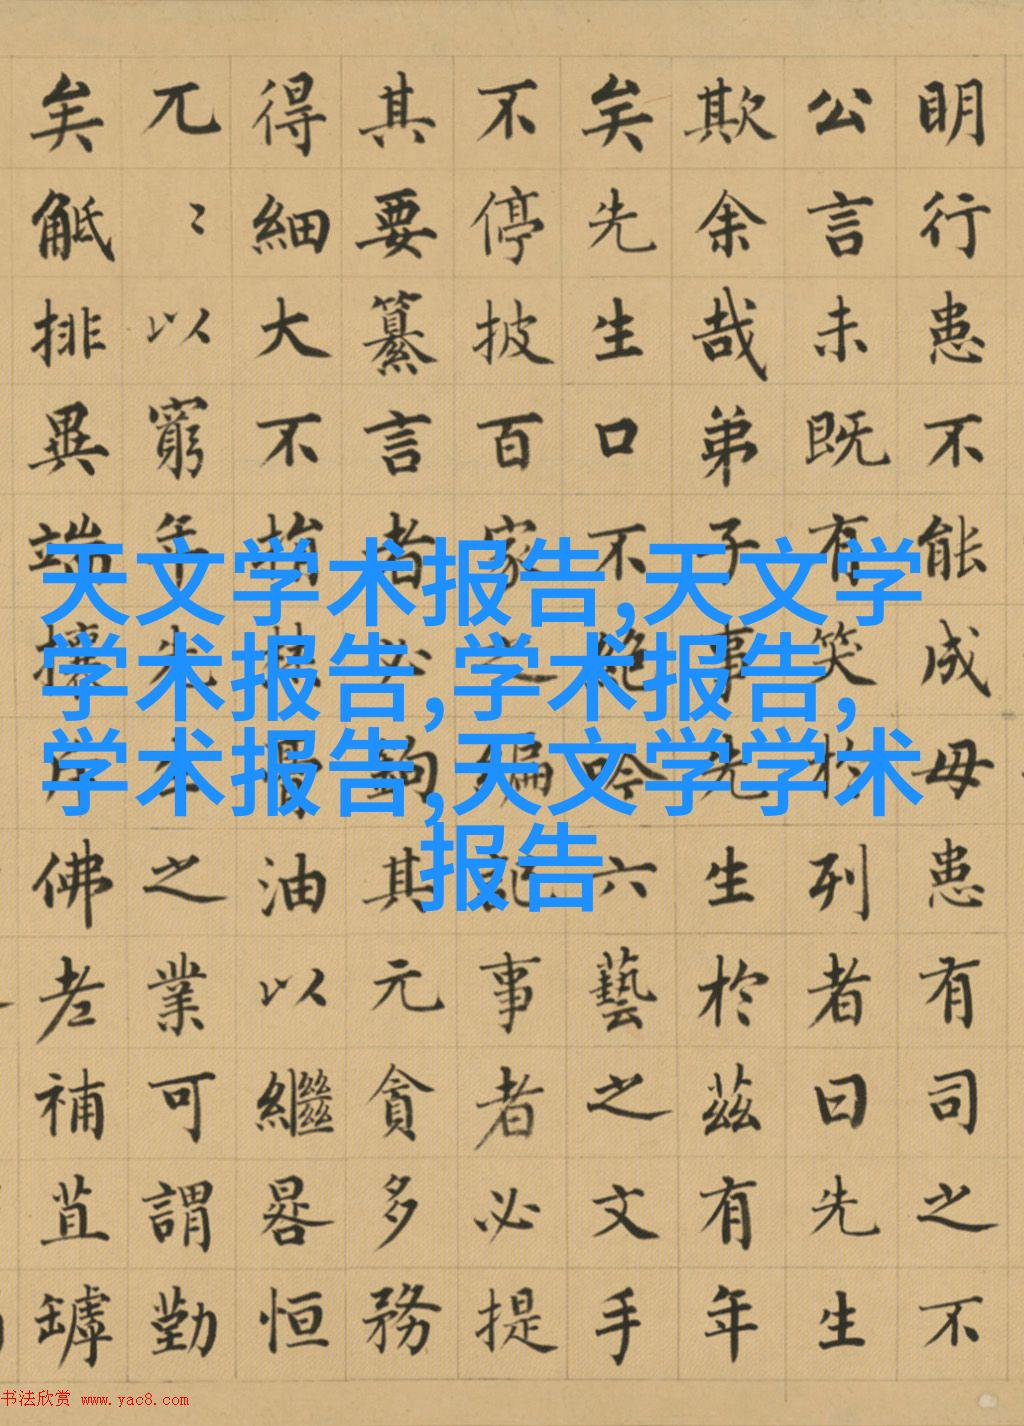 明行患不能成毋患有司之不
公言未既有笑於列者曰先生
欺余哉弟子事先生於茲有年
矣先生口不絕吟六藝之文手
不停披百家之編記事者必提
其要纂言者必鉤其元貪多務
得細大不捐焚膏油以繼晷恒
兀〻以窮年先生之業可謂勤
矣觝排異端攘斥佛老補苴罅
天文学术报告,天文学
学术报告,学术报告,
学术报告,天文学学术
报告
书法欣赏 www.yac8.com